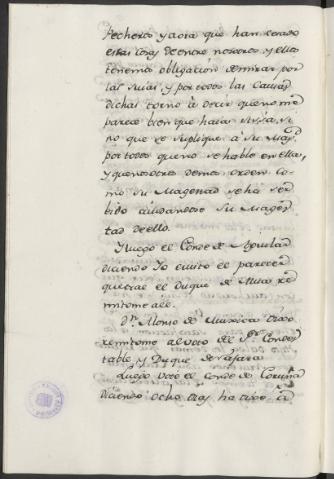 Pecheros y aora que han cesado
estas cosas de entre nosotros y ellos
tenemos obligacion de mirar por
las suias, y por todas las causas
dichas torno à decir que no me
parece bien que haia sissa, si
no que se suplique à su Magd
por todos que no se hable en ella,
y que nosotros demos orden co-
mo su Magestad sea ser
bido ciudandose su Mages
tad de ello.
Y luego el Conde de
diciendo Yo embio el parecer
que trae el Duque de re
mitome a el.
Dn Alonso de
remitome al voto del Sr Condes
table y Duque de Vejar.
Luego votó el conde de Coruña
diciendo ocho dias ha